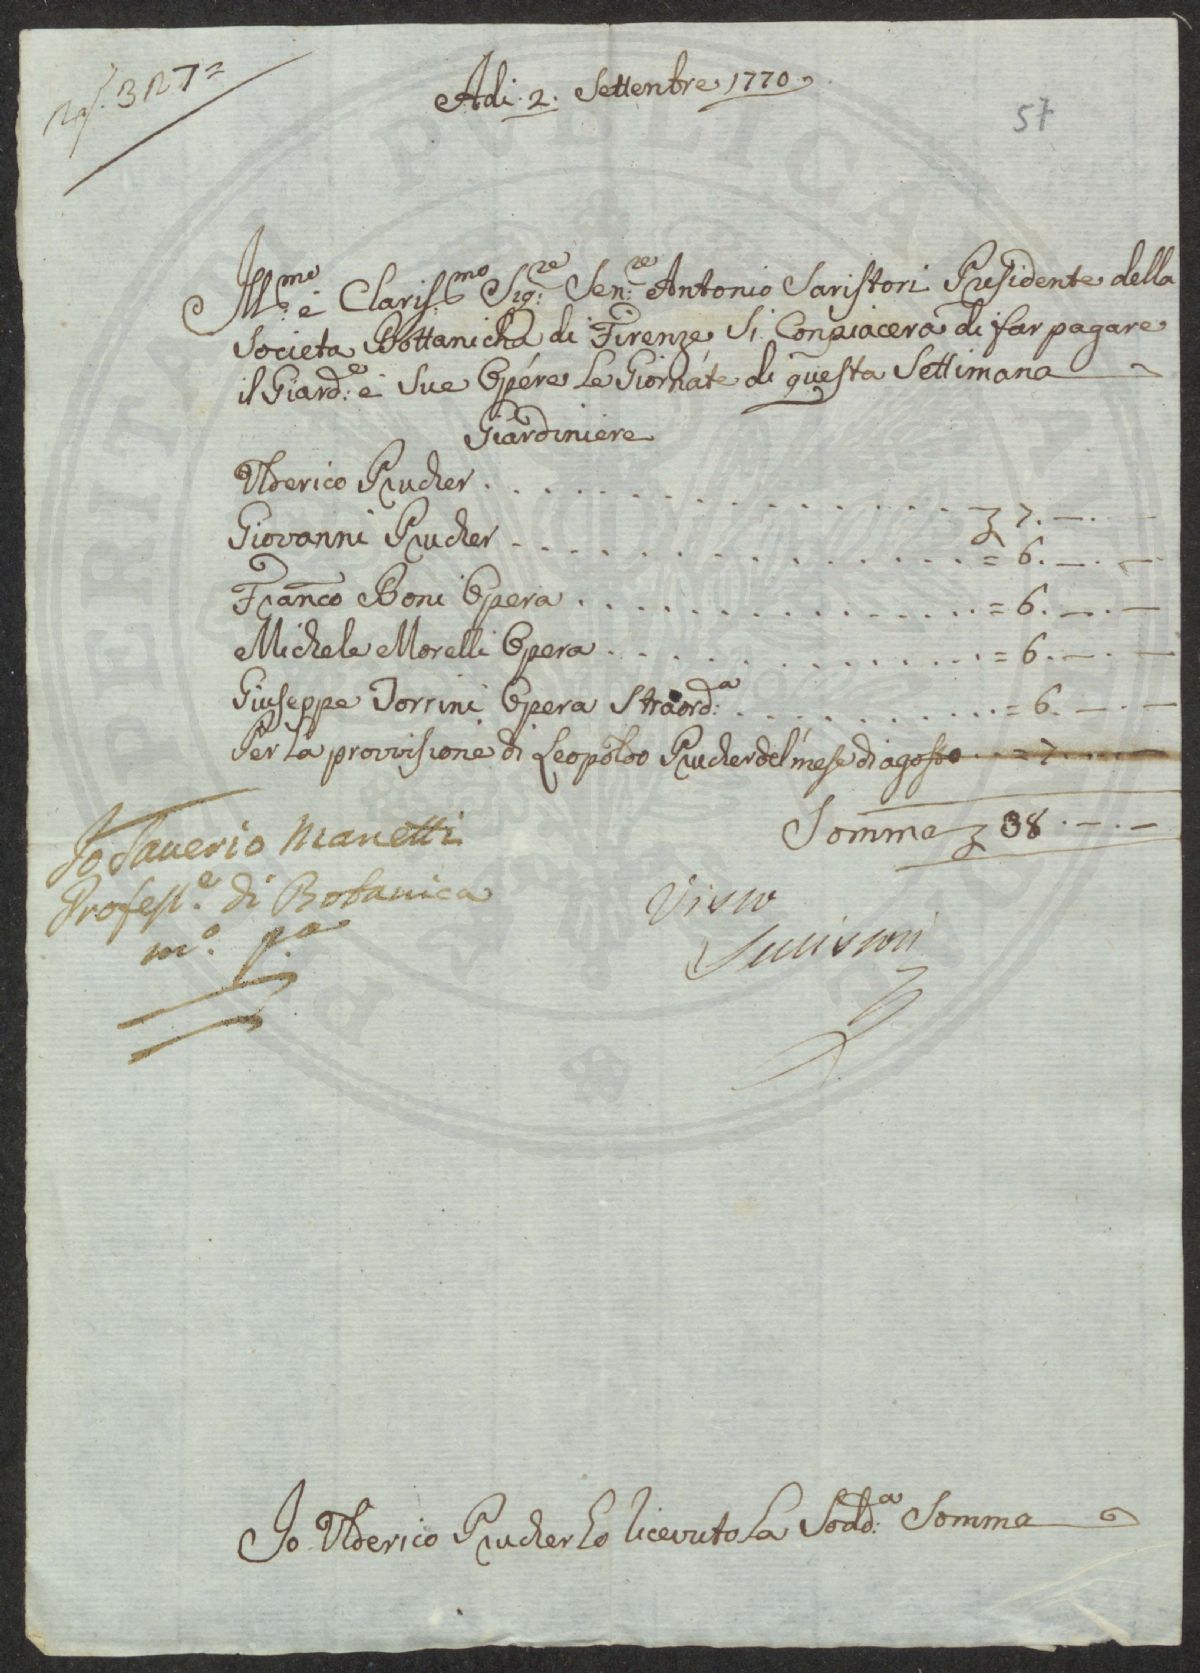 327
Adi. 2. Settenbre 1770
57
Ill:mo e Clariss:mo Sig:re Sen:re Antonio Saristori Presidente della
Societa Bottanicha di Firenze Si Conpiacera di far pagare
il Giard:e e Sue Opere Le Giornate di questa Settimana
Giardiniere
Ulderico Prucher . . . . . . . . . . . . . . . 7. —. —
Giovanni Prucher . . . . . . . . . . . . . . . = 6. —. —
Franco Boni Opera . . . . . . . . . . . . . = 6. —. —
Michele Morelli Opera . . . . . . . . . . . . = 6. —. —
Giuseppe Torrini Opera Straord:a . . . . . . . . . . = 6. —. —
Per La provvisione di Leopoldo Prucher del mese di agosto . . = 7. . . .
Somma 38. —. —
Io Saverio Manetti
Profess.e di Botanica
m.o p.a
Visto
Io Ulderico Prucher ho riceuto La Sodd:a Somma